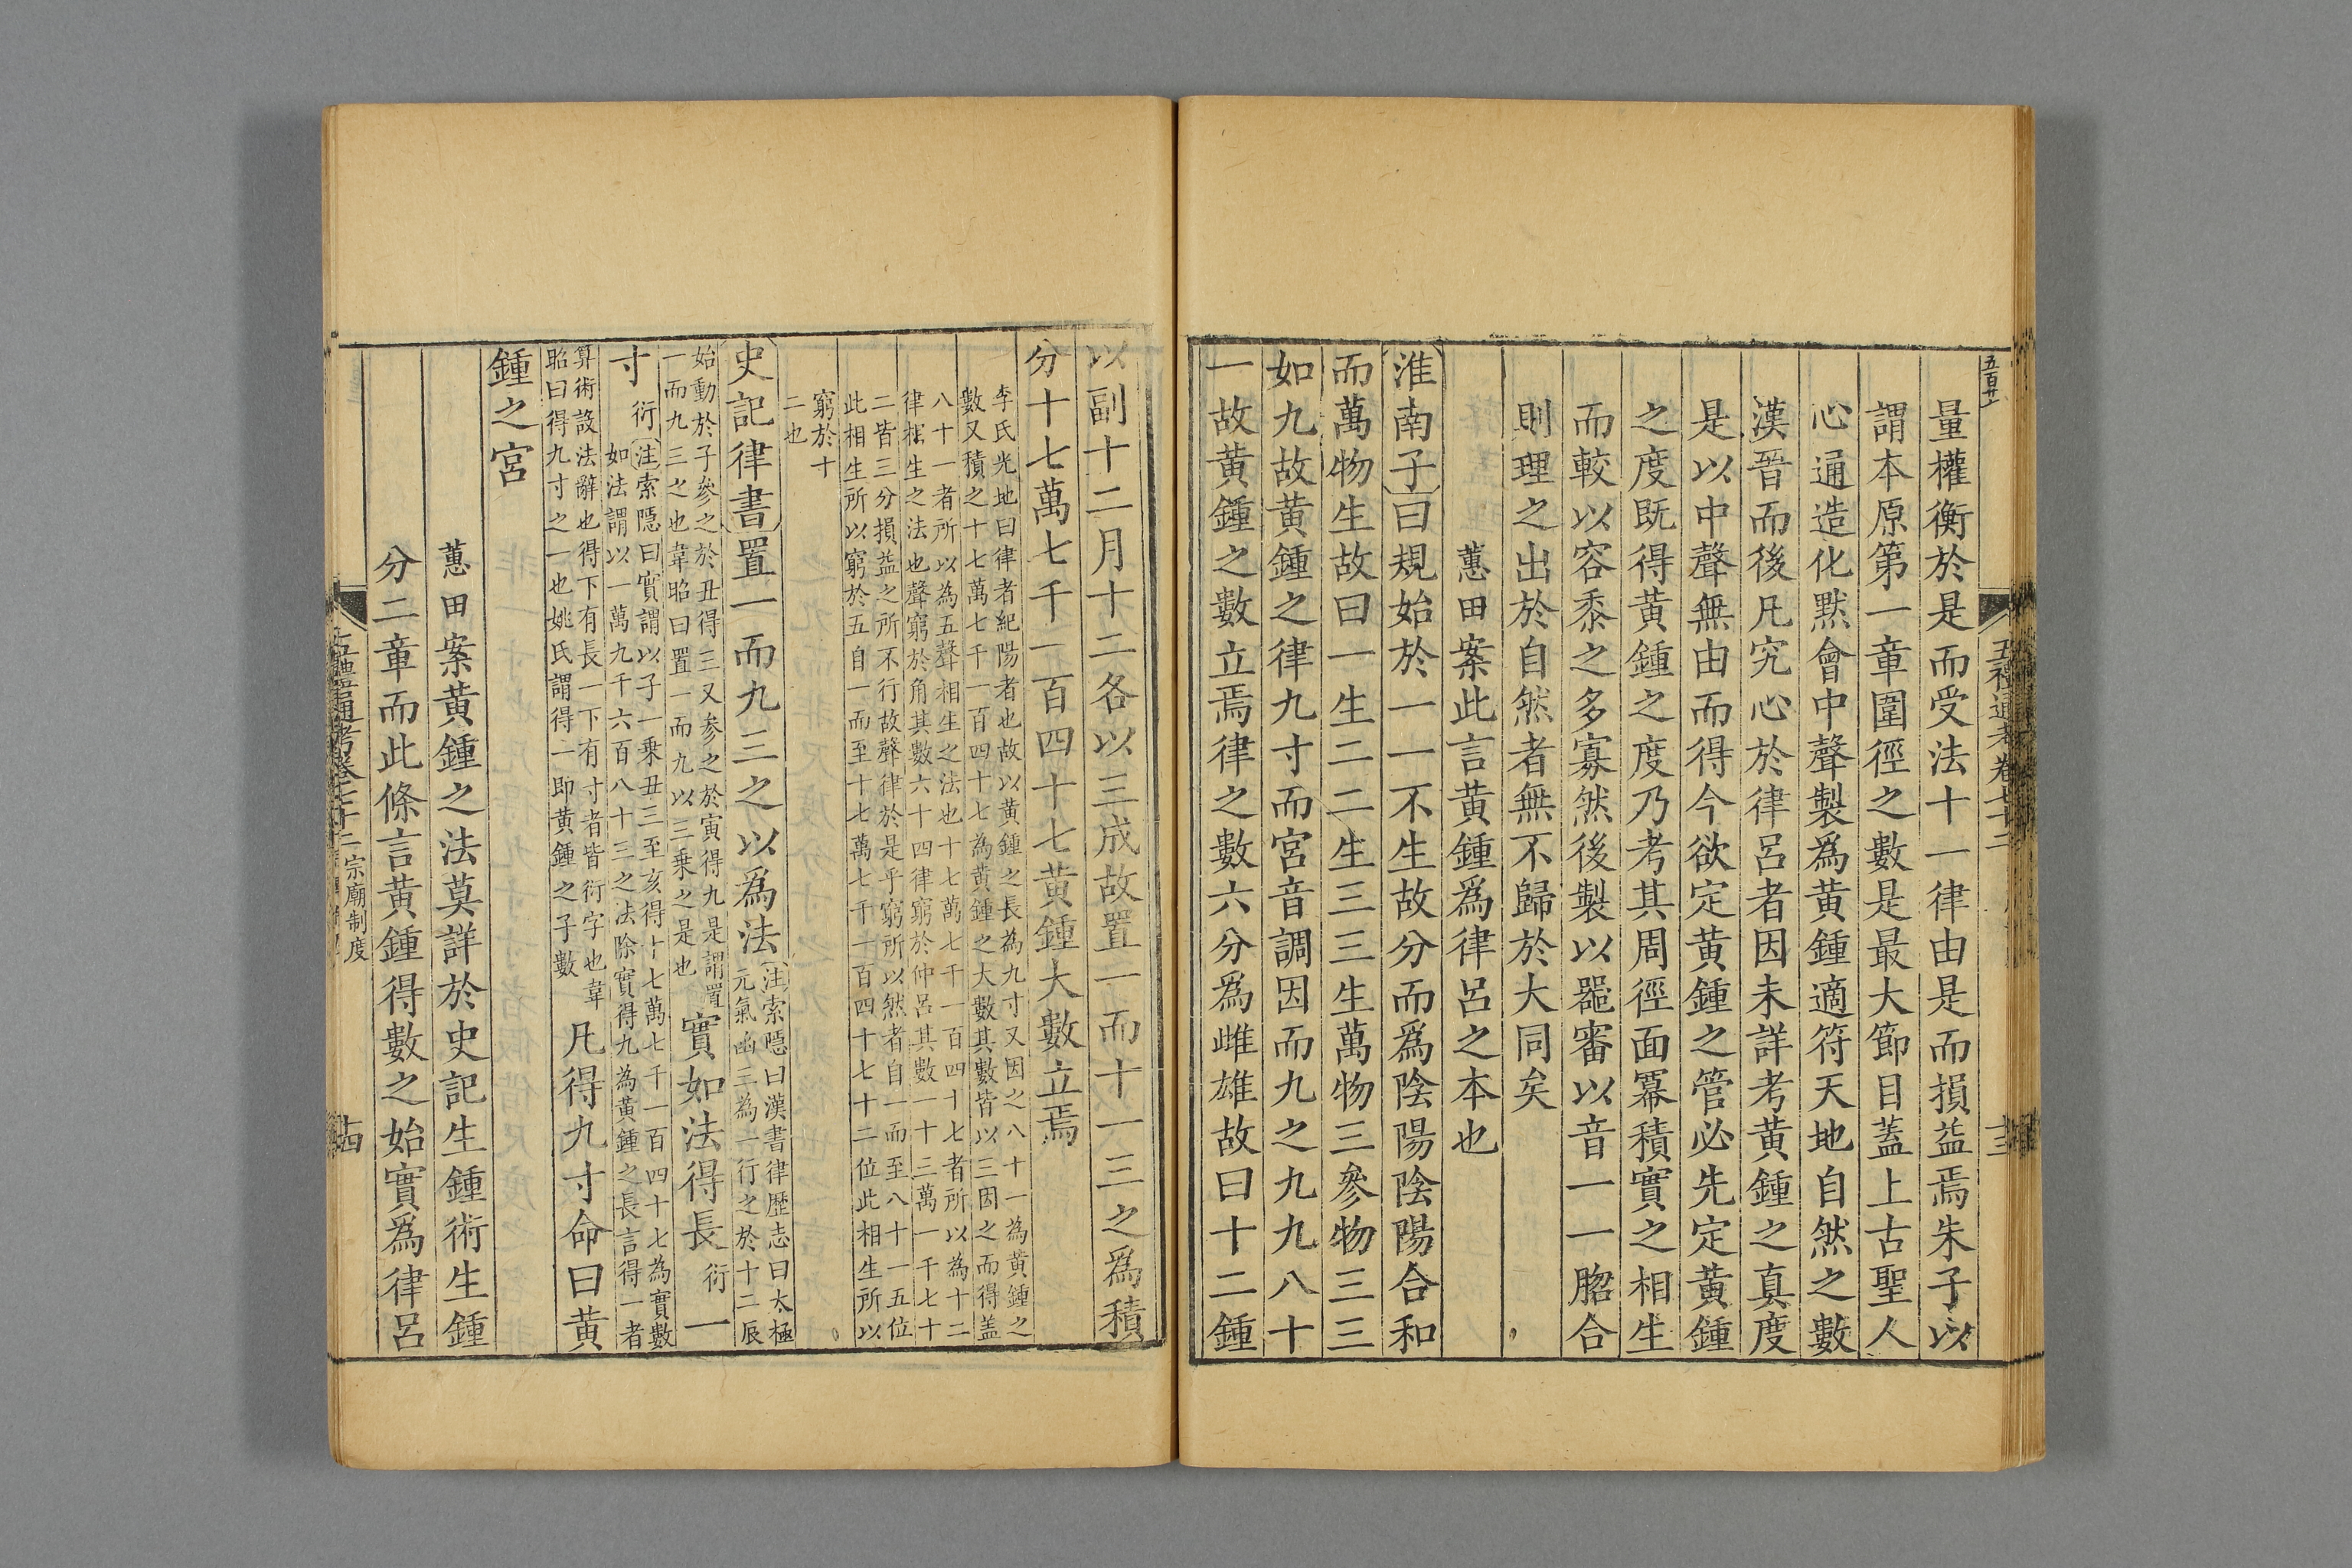 五百廿
五禮通考卷七十二
十三
量權衡於是而受法十一律由是而損益焉朱子以
謂本原第一章圍徑之數是最大節目蓋上古聖人
心通造化默會中聲製爲黄鍾適符天地自然之數
漢晉而後凡究心於律呂者因未詳考黄鍾之真度
是以中聲無由而得今欲定黄鍾之管必先定黄鍾
之度既得黄鍾之度乃考其周徑面冪積實之相生
而較以容黍之多寡然後製以器審以音一一脗合
則理之出於自然者無不歸於大同矣
蕙田案此言黄鍾爲律呂之本也
淮南子曰規始於一一不生故分而爲陰陽陰陽合和
而萬物生故曰一生二二生三三生萬物三參物三三
如九故黄鍾之律九寸而宮音調因而九之九九八十
一故黄鍾之數立焉律之數六分爲雌雄故曰十二鍾
以副十二月十二各以三成故置一而十一三之爲積
分十七萬七千一百四十七黄鍾大數立焉
李氏光地曰律者紀陽者也故以黄鍾之長為九寸又因之八十一為黄鍾之
數又積之十七萬七千一百四十七為黄鍾之大數其數皆以三因之而得盖
八十一者所以為五聲相生之法也十七萬七千一百四十七者所以為十二
律相生之法也聲窮於角其數六十四律窮於仲呂其數一十三萬一千七十
二皆三分損益之所不行故聲律於是乎窮所以然者自一而至八十一五位
此相生所以窮於五自一而至十七萬七千一百四十七十二位此相生所以
窮於十
二也
史記律書置一而九三之以爲法
注索隱曰漢書律歷志曰太極
元氣函三為一行之於十二辰
始動於子參之於丑得三又參之於寅得九是謂置
一而九三之也韋昭曰置一而九以三乗之是也
實如法得長
衍
一
寸
衍
注索隱曰實謂以子一乗丑三至亥得十七萬七千一百四十七為實數
如法謂以一萬九千六百八十三之法除實得九為黄鍾之長言得一者
算術設法辭也得下有長一下有寸者皆衍字也韋
昭曰得九寸之一也姚氏謂得一即黄鍾之子數
凡得九寸命曰黄
鍾之宮
蕙田案黄鍾之法莫詳於史記生鍾術生鍾
分二章而此條言黄鍾得數之始實爲律呂
五禮通考卷七十二
宗廟制度
十四